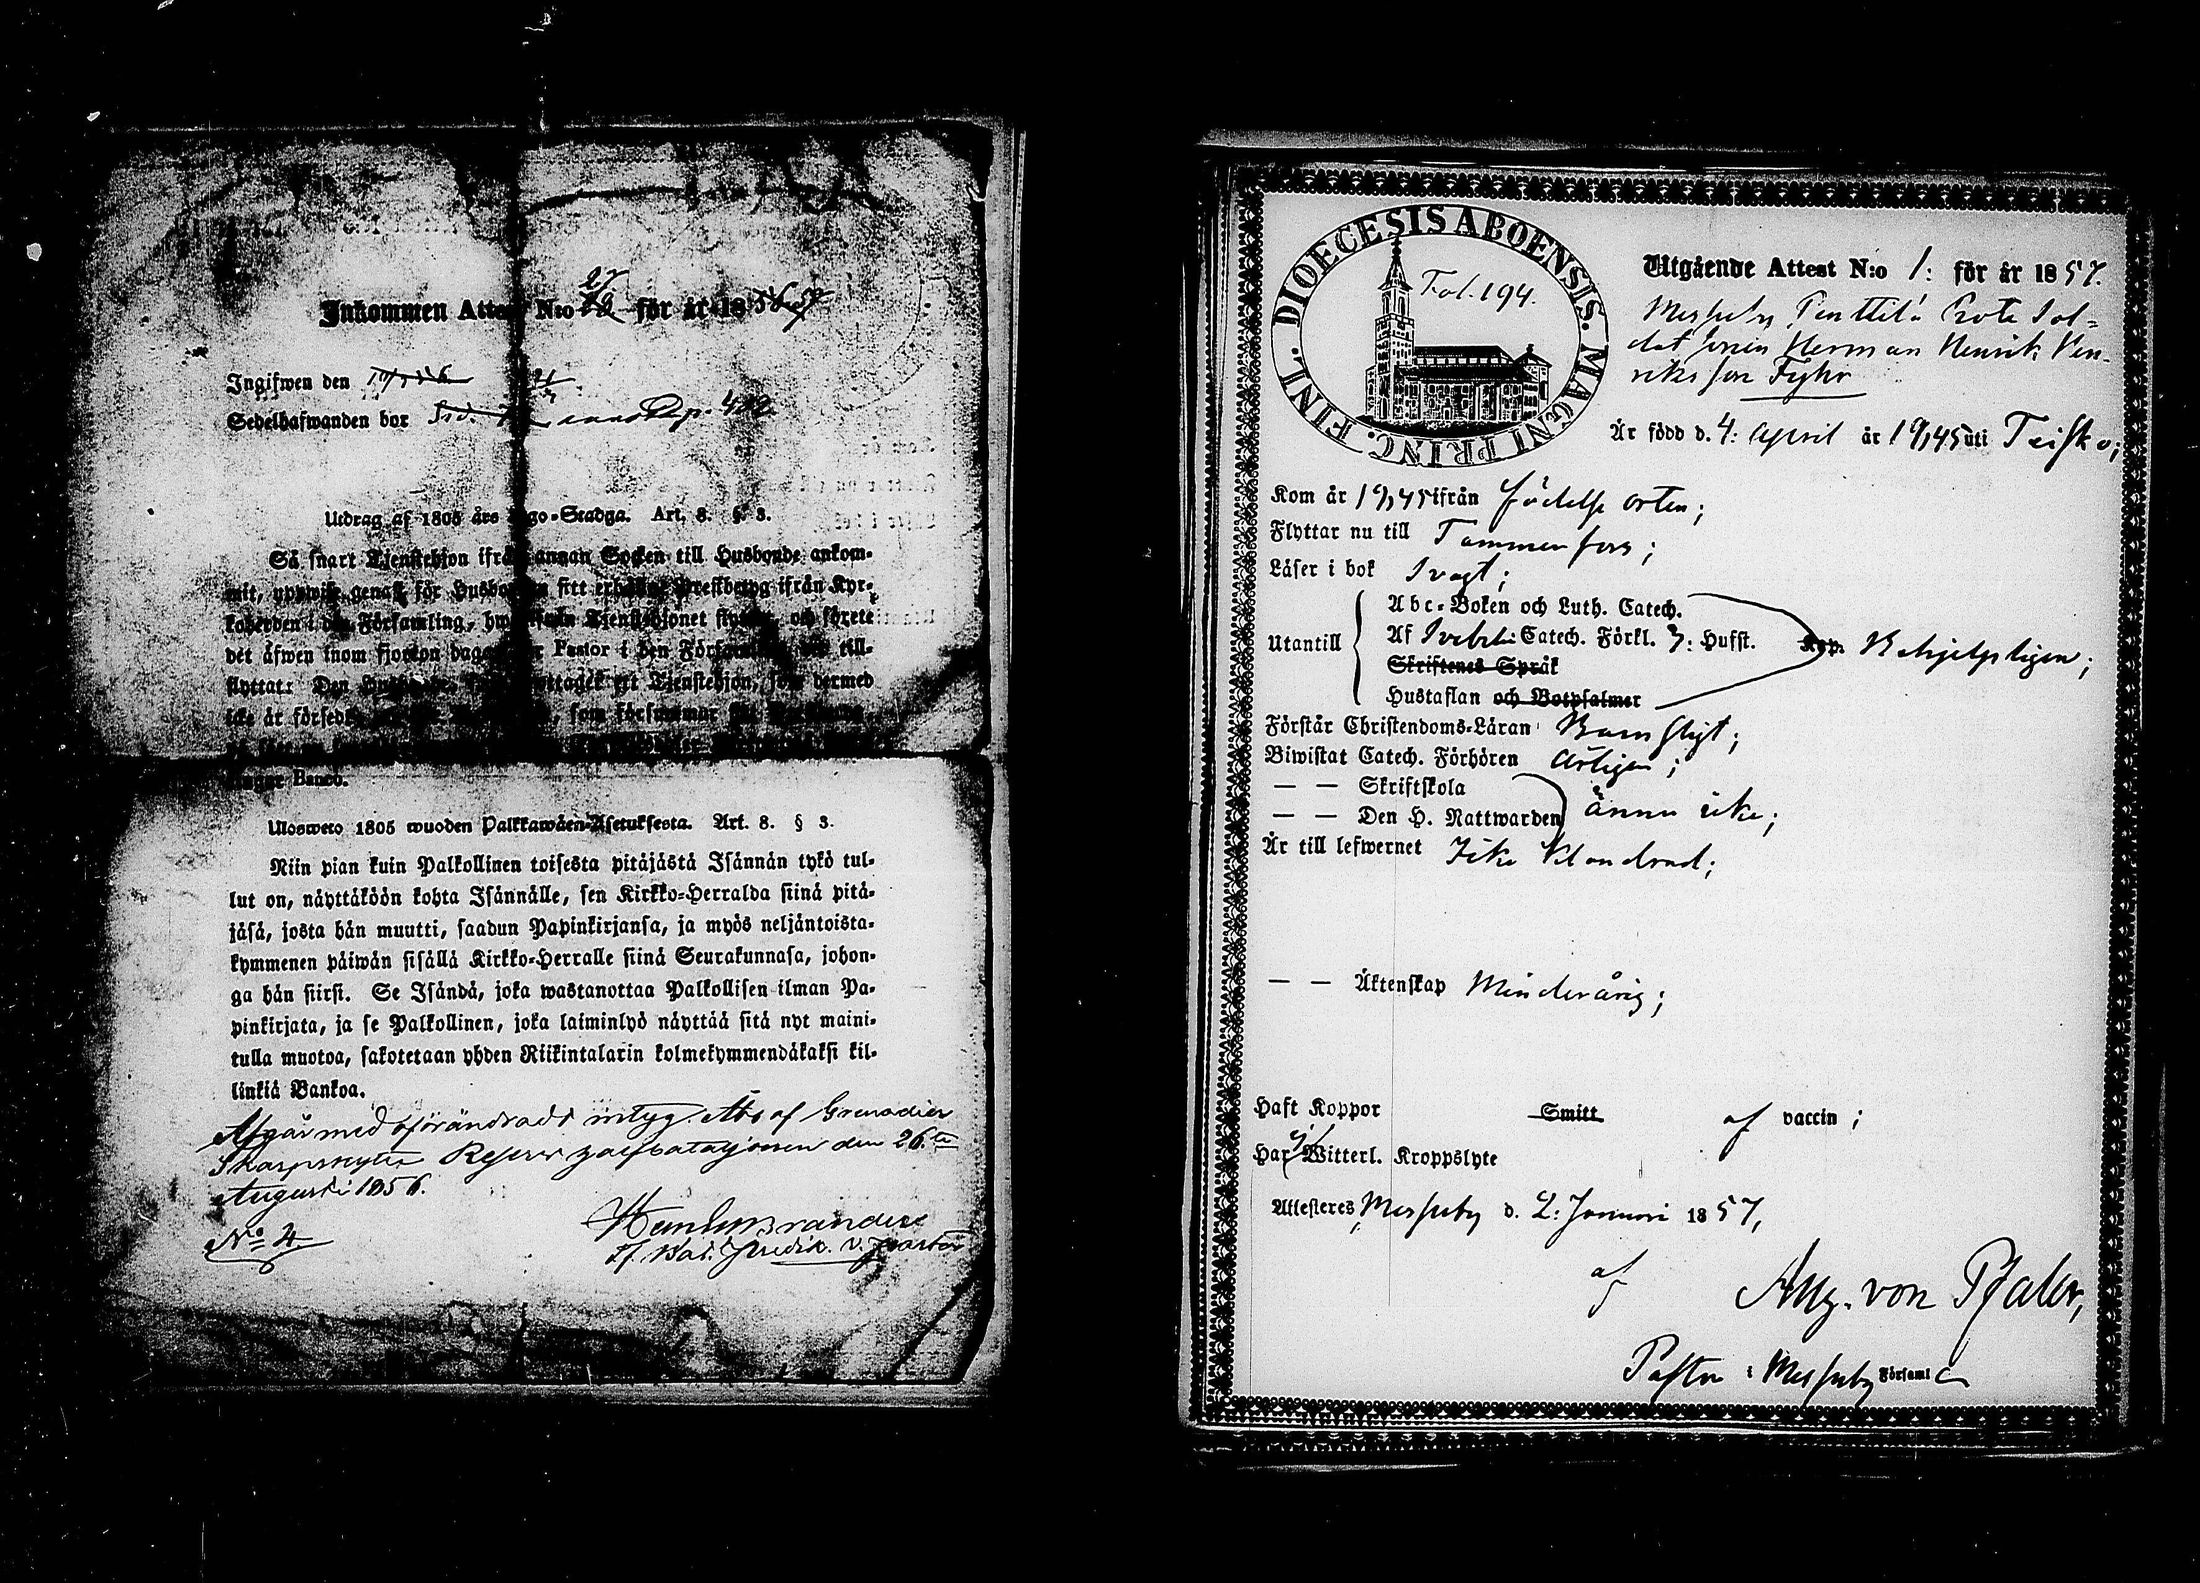 Inkommen Attest N:o 27 för år 1856 57
Ingifwen den
Sedelhafwanden bor
Utdrag af 1805 års Lego-Stadga. Art. 8. § 3.
Så snart Tjenstehjon ifrån annan Socken till Husbonde ankom-
mit, uppwise genast för Husbonden sitt erhållna Prestbetyg ifrån Kyr-
koherden i den Församling, hwarifrån Tjenstehjonet flyttat, och förete
det äfwen inom fjorton dagar för Pastor i den Församling, dit till-
flyttat: Den Husbonde, som emottager ett Tjenstehjon, som dermed
icke är försedt, som försummar
Banco.
Ulosweto 1805 wuoden Palkkawäen-Asetuksesta. Art. 8. § 3.
Niin pian kuin Palkollinen toisesta pitäjästä Isännän tykö tul-
lut on, näyttäköön kohta Isännälle, sen Kirkko-Herralda siinä pitä-
jäsä, josta hän muutti, saadun Papinkirjansa, ja myös neljäntoista-
kymmenen päiwän sisällä Kirkko-Herralle siinä Seurakunnasa, johon-
ga hän siirsi. Se Isändä, joka wastanottaa Palkollisen ilman Pa-
pinkirjata, ja se Palkollinen, joka laiminlyö näyttää sitä nyt maini-
tulla muotoa, sakotetaan yhden Riikintalarin kolmekymmendäkaksi kil-
linkiä Bankoa.
Afgår med oförändradt intyg. Åbo af Grenadier
Skarpskytte Reserv den 26:te
Augusti 1856.
N:o 4.
v. Pastor
DIOECESIS ABOENSIS. MAGNI PRINC. FINL.
Fol. 194.
Utgående Attest N:o 1: för år 1857.
Messuby Penttilä Rote Sol=
dat sonen Herman Henrik Hen-
riksson Fyhr
Är född d. 4: April år 1845 uti Teisko;
Kom år 1845 ifrån födelse orten;
Flyttar nu till Tammerfors;
Läser i bok Svagt;
Utantill
Abc-Boken och Luth. Catech.
Af Svebel: Catech. Förkl. 3: Hufst.
Behjelpligen;
Skriftenes Språk
Hustaflan och Botpsalmer
Förstår Christendoms-Läran Barnsligt;
Biwistat Catech. Förhören Årligen;
— — Skriftskola
— — Den H. Nattwarden ännu icke;
Är till lefwernet Icke klandrad;
— — Äktenskap Minderårig;
Haft Koppor Smitt af vaccin;
Har ej Witterl. Kroppslyte
Attesteres, Messuby d. 2: Januari 1857,
af Aug. von Pfaler,
Pastor i Messuby Församl